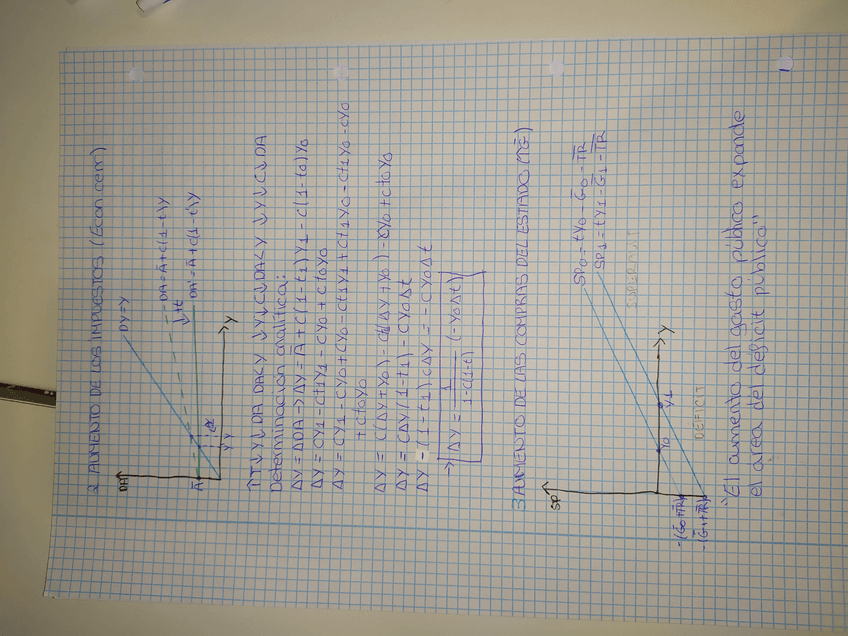 2. AUMENTO DE LOS IMPUESTOS (Econ cerr)
DA
DY=Y
DA=Ā+C(1-t)Y
↓+t
DA'=Ā+C(1-t')Y
Ā
Y' Y
Y
↑T↓Y↓DA DA<Y ↓Y↓C↓DA<Y ↓Y↓C↓DA
Determinación analítica:
ΔY=ΔDA→ΔY=Ā+C(1-t1)Y1-C(1-t0)Y0
ΔY=CY1-Ct1Y1-CY0+Ct0Y0
ΔY=CY1-CY0+CY0-Ct1Y1+Ct1Y0-Ct1Y0-CY0
+Ct0Y0
ΔY=C(ΔY+Y0)-Ct1(ΔY+Y0)-CY0+Ct0Y0
ΔY=CΔY(1-t1)-CY0Δt
ΔY-(1-t1)CΔY=-CY0Δt
→ΔY=1/1-C(1-t)(-Y0Δt)
3 AUMENTO DE LAS COMPRAS DEL ESTADO (↑G)
SP
SP0=tY0-Ḡ0-T̅R̅
SP1=tY1-Ḡ1-T̅R̅
SUPERAVIT
Y0 Y1
Y
DEFICIT
-(Ḡ0+T̅R̅)
-(Ḡ1+T̅R̅)
"El aumento del gasto público expande
el area del déficit público"
1